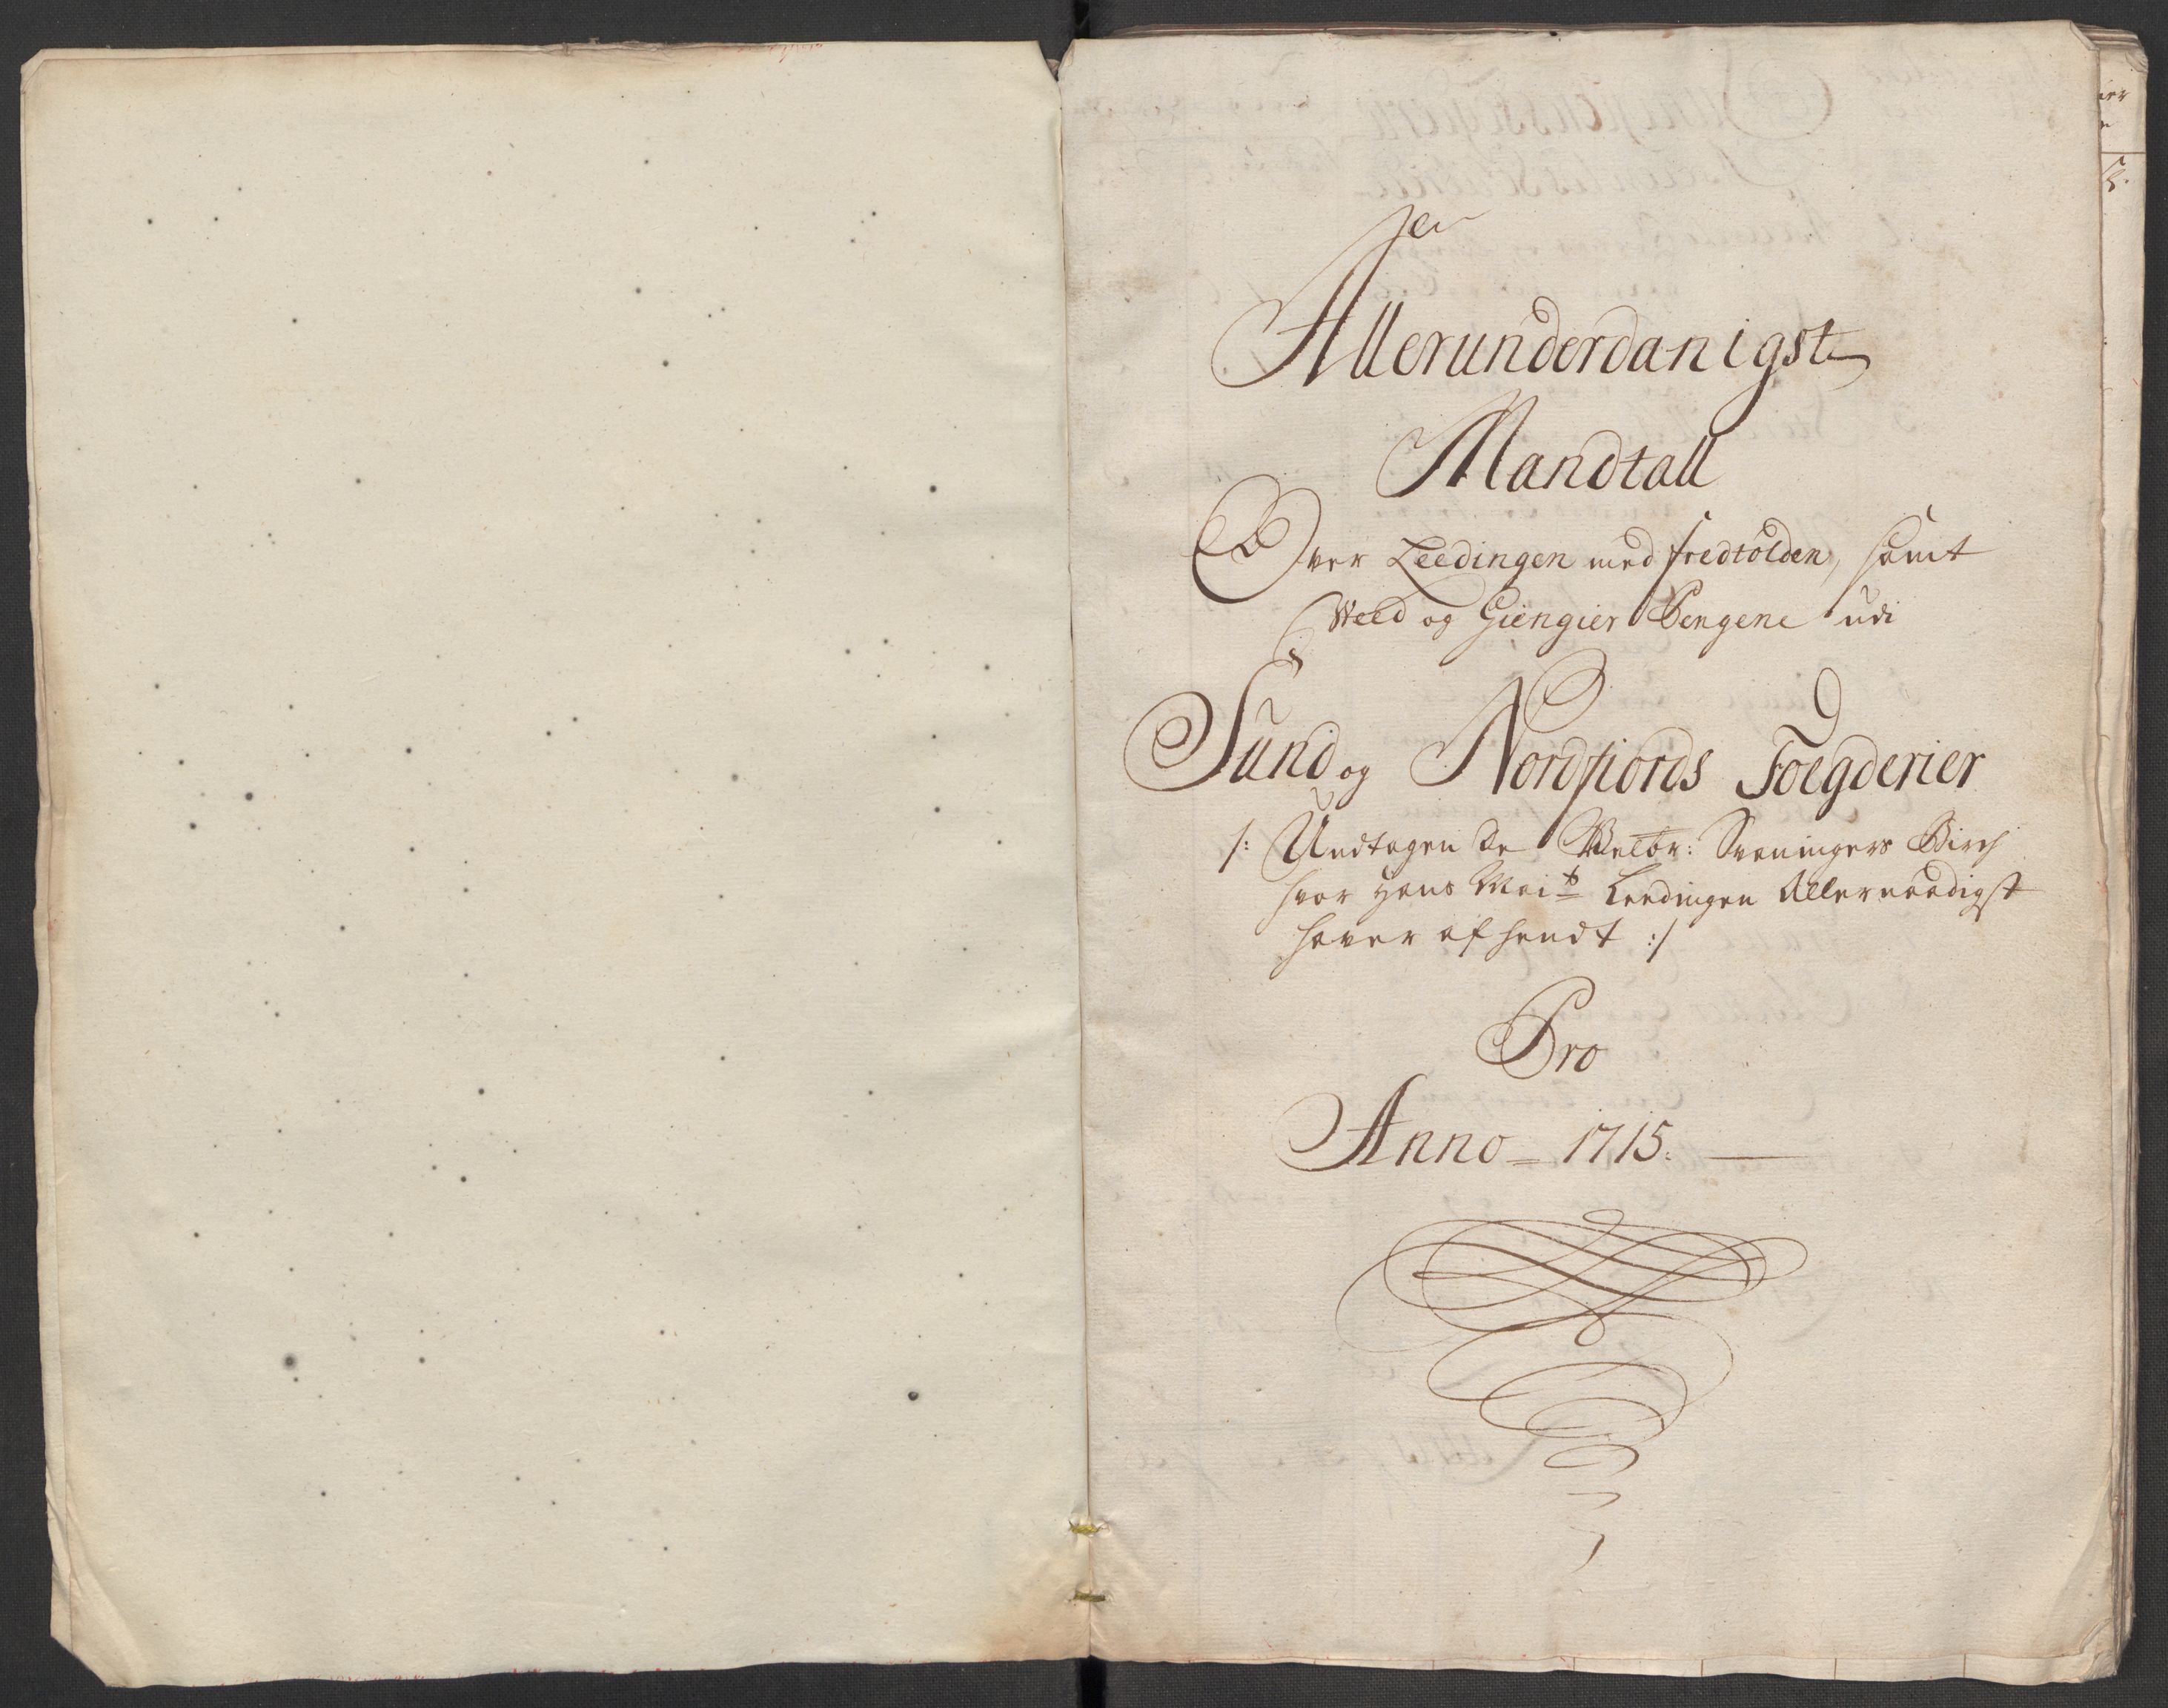 Allerunderdanigst
Mandtall
Over Leedingen med fredtolden, samt
Weed og Giengier Pengene udi
Sund og Nordfiords Foegderier
/: Undtagen de Velbr: Svaningers Birch
hvor Hans Mait Leedingen Allernaadigst
haver afhendt :/
Pro
Anno - 1715.